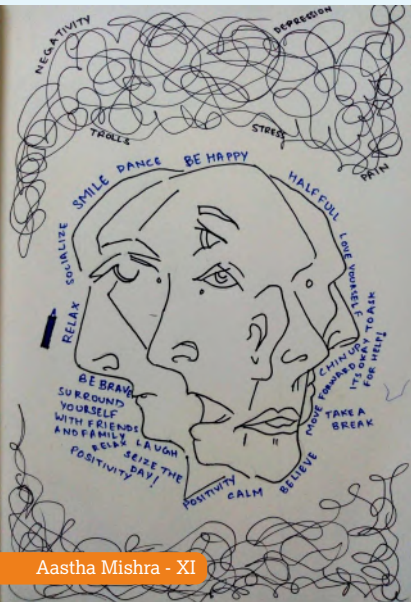 NEGATIVITY
DEPRESSION
TROLLS
STRESS
PAIN
RELAX
SOCIALIZE
SMILE
DANCE
BE HAPPY
HALF FULL
LOVE YOURSELF
ITS OKAY TO ASK
FOR HELP!
CHIN UP
MOVE FORWARD
TAKE A
BREAK
BELIEVE
CALM
POSITIVITY
BE BRAVE
SURROUND
YOURSELF
WITH FRIENDS
AND FAMILY
LAUGH
RELAX
SEIZE THE
DAY!
POSITIVITY
Aastha Mishra - XI